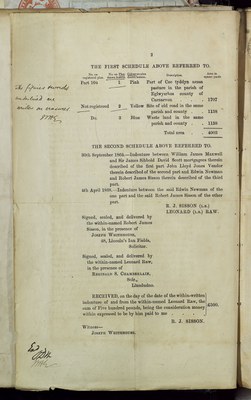 3
THE FIRST SCHEDULE ABOVE REFERRED TO.
No. on ordnance plan. No. on Plan drawn hereon. Colouration on plan hereon. Description. Area in square yards.
Part 10a 1 Pink Part of Cae tyddyn arable
pasture in the parish of
Eglwysrhos county of
Carnarvon 1707
Not registered 2 Yellow Site of old road in the same
parish and county 1158
Do. 3 Blue Waste land in the same
parish and county 1188
Total area 4003
THE SECOND SCHEDULE ABOVE REFERRED TO.
26th September 1905.—Indenture between William James Maxwell
and Sir James Sibbald David Scott mortgagees therein
described of the first part John Lloyd James Vaudor
therein described of the second part and Edwin Newman
and Robert James Sisson therein described of the third
part.
4th April 1908.—Indenture between the said Edwin Newman of the
one part and the said Robert James Sisson of the other
part.
R. J. SISSON (L.S.)
LEONARD (L.S.) RAW.
Signed, sealed, and delivered by
the within-named Robert James
Sisson, in the presence of
Joseph
48, Lincoln's Inn Fields,
Solicitor.
Signed, sealed, and delivered by
the within-named Leonard Raw,
in the presence of
Reginald S. Chamberlain,
Solr.,
Llandudno.
RECEIVED, on the day of the date of the within-written
indenture of and from the within-named Leonard Raw, the
sum of Five hundred pounds, being the consideration money
within expressed to be by him paid to me £500.
R. J. SISSON.
Witness—
Joseph